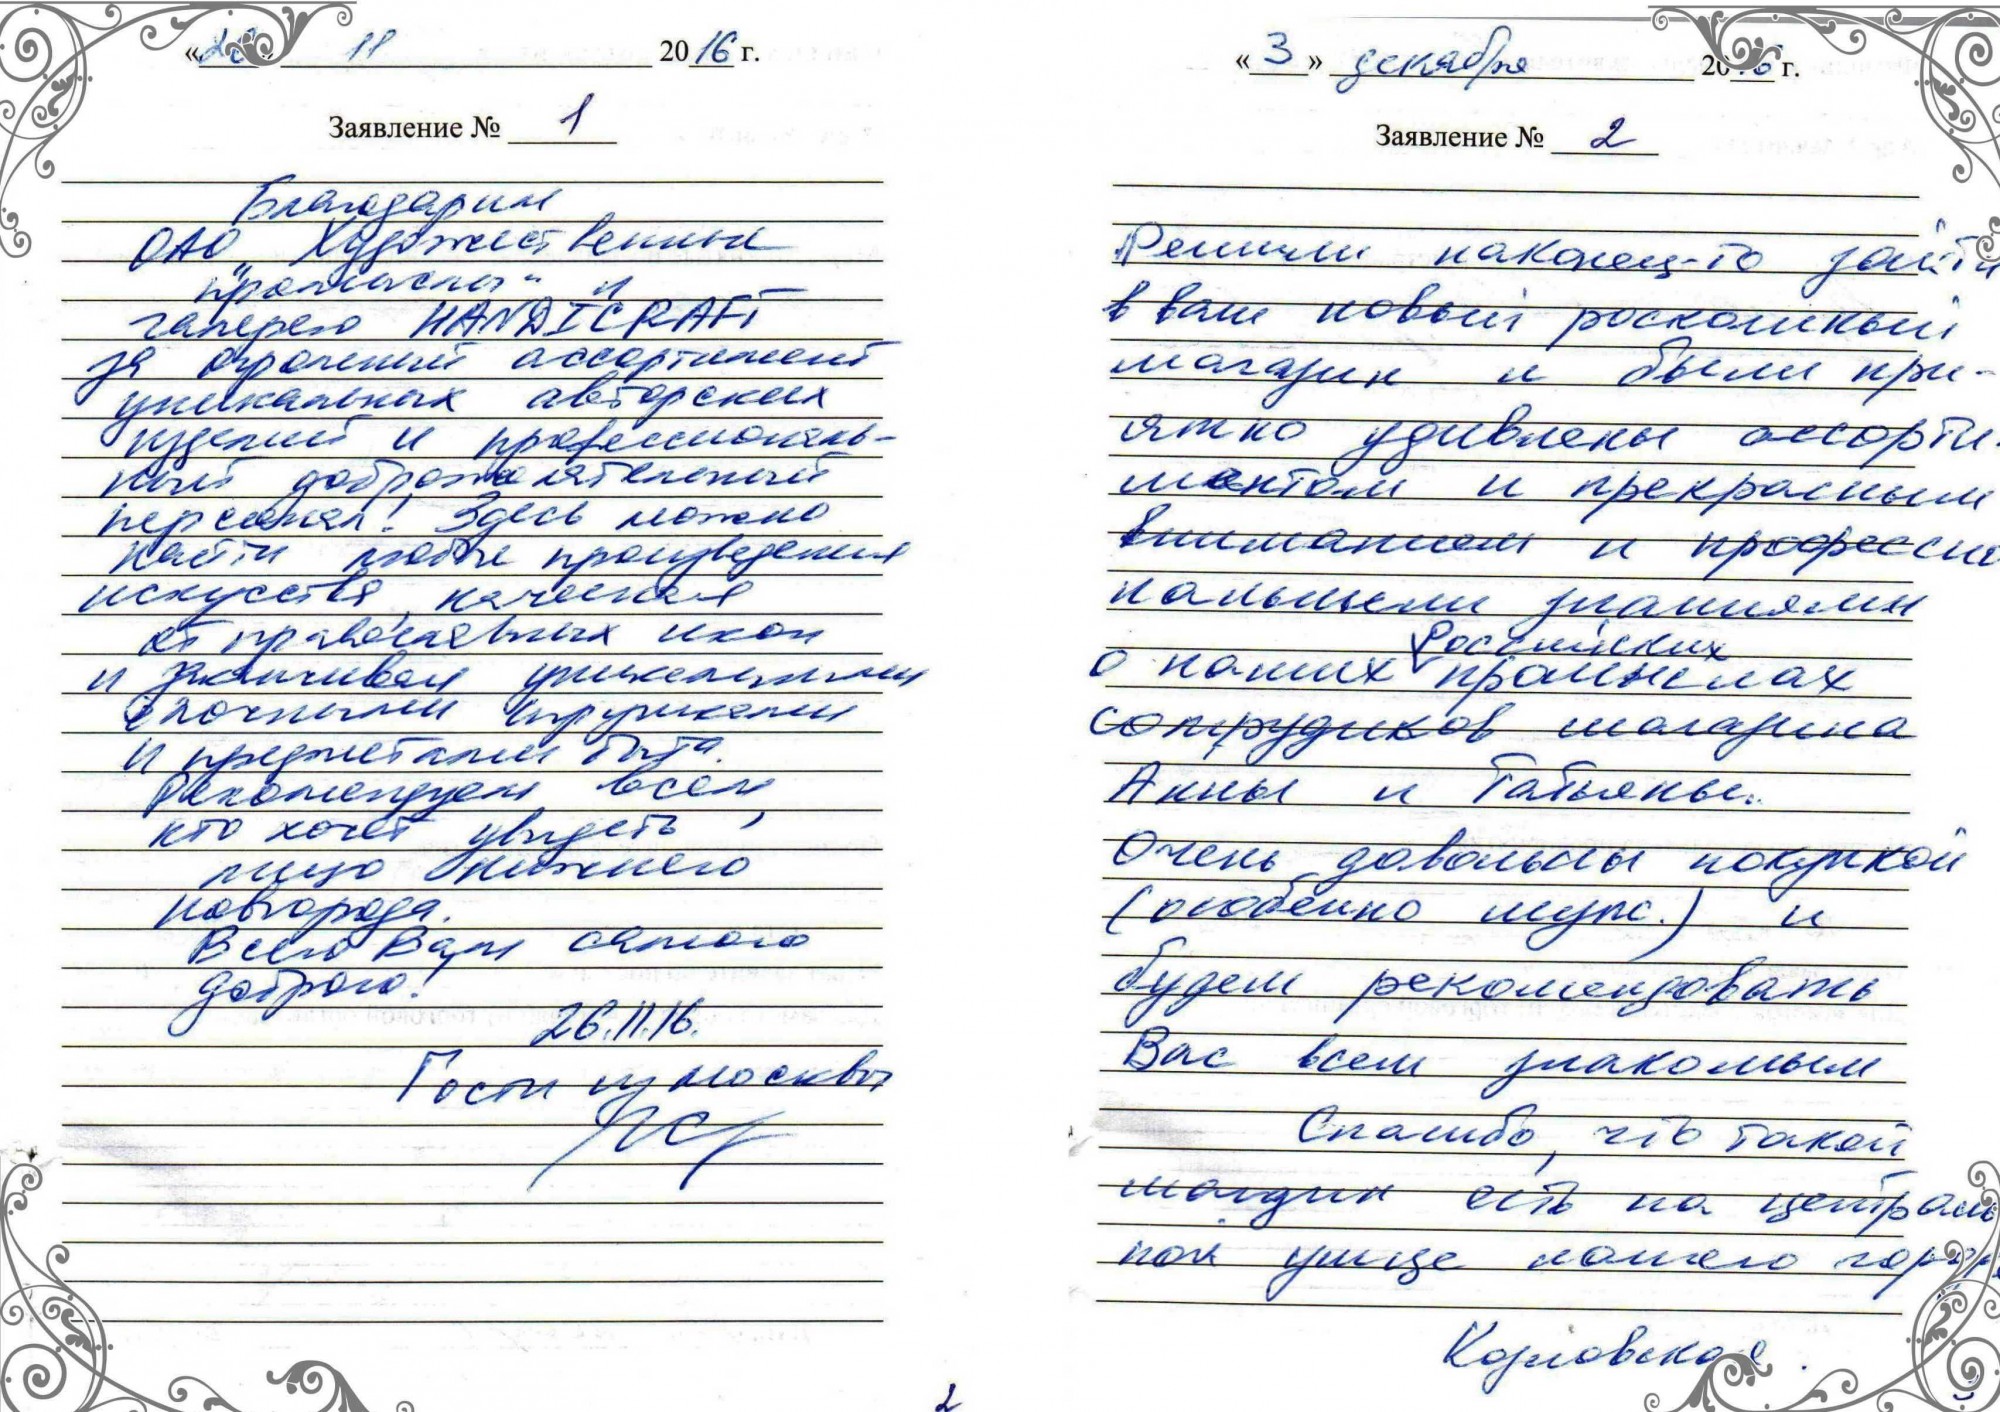 «26» 11 2016 г.
Заявление № 1
Благодарим
ОАО „Художественные
промыслы" и
галерею HANDICRAFT
за огромный ассортимент
уникальных авторских
изделий и профессиональ-
ный доброжелательный
персонал! Здесь можно
найти любые произведения
искусства, начиная
от православных икон
и заканчивая уникальными
ёлочными игрушками
и предметами быта.
Рекомендуем всем,
кто хочет увидеть
лицо Нижнего
Новгорода.
Всего Вам самого
доброго!
26.11.16.
Гости из Москвы
2
«3» декабря 2016 г.
Заявление № 2
Решили наконец-то зайти
в ваш новый роскошный
магазин и были при-
ятно удивлены ассорти-
ментом и прекрасным
вниманием и профессио
нальными знаниями
о наших Российских промыслах
сотрудиков магазина
Анны и Татьяны.
Очень довольны покупкой
(особенно муж.) и
будем рекомендовать
Вас всем знакомым
Спасибо, что такой
магазин есть на централь
ной улице нашего города
Козловская.
3